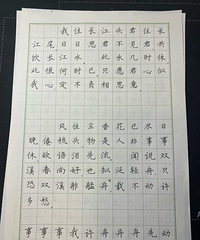 我住长江头君住长
江尾日日思君不见君共
饮长江水此水几时休
此恨何时已只愿君心似
我心定不负相思意
风住尘香花已尽日
晚倦梳头物是人非事事
休欲语泪先流闻说双
溪春尚好也拟泛轻舟只
恐双溪舴艋舟载不动许
多愁
事事我许舟舟舟